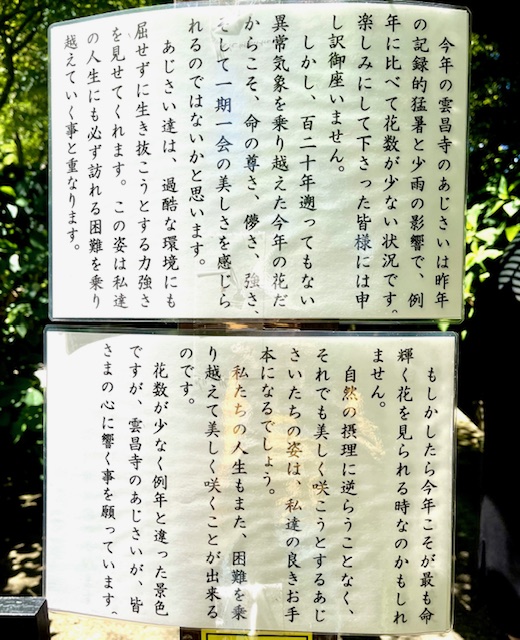 今年の雲昌寺のあじさいは昨年
の記録的猛暑と少雨の影響で、例
年に比べて花数が少ない状況です。
楽しみにして下さった皆様には申
し訳御座いません。
しかし、百二十年遡ってもない
異常気象を乗り越えた今年の花だ
からこそ、命の尊さ、儚さ、強さ、
そして一期一会の美しさを感じら
れるのではないかと思います。
あじさい達は、過酷な環境にも
屈せずに生き抜こうとする力強さ
を見せてくれます。この姿は私達
の人生にも必ず訪れる困難を乗り
越えていく事と重なります。
もしかしたら今年こそが最も命
輝く花を見られる時なのかもしれ
ません。
自然の摂理に逆らうことなく、
それでも美しく咲こうとするあじ
さいたちの姿は、私達の良きお手
本になるでしょう。
私たちの人生もまた、困難を乗
り越えて美しく咲くことが出来る
のです。
花数が少なく例年と違った景色
ですが、雲昌寺のあじさいが、皆
さまの心に響く事を願っています。